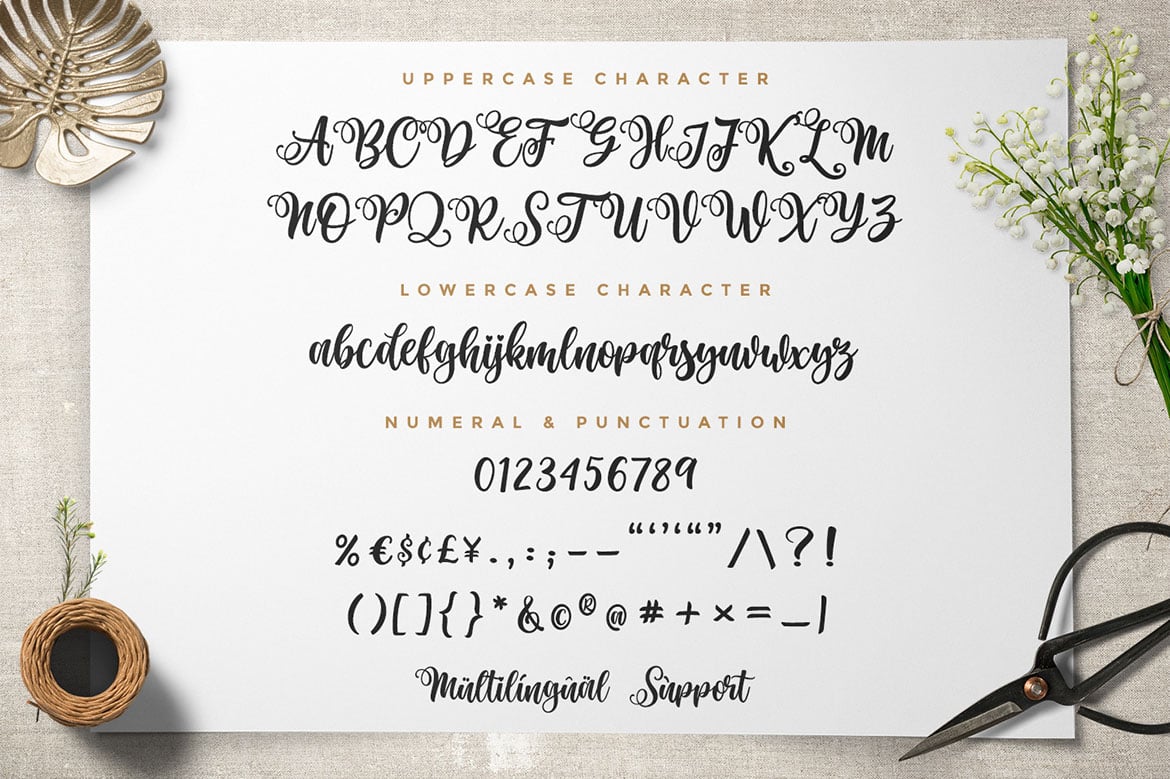 UPPERCASE CHARACTER
ABCDEFGHIJKLM
NOPQRSTUVWXYZ
LOWERCASE CHARACTER
abcdefghijkmlnopqrsyuvwxyz
NUMERAL & PUNCTUATION
0123456789
%€$¢£¥.,:;––“‘’‘“”/\?!
()[]{}*&©®@#+×=_|
Mültilíngûäl Sùpport